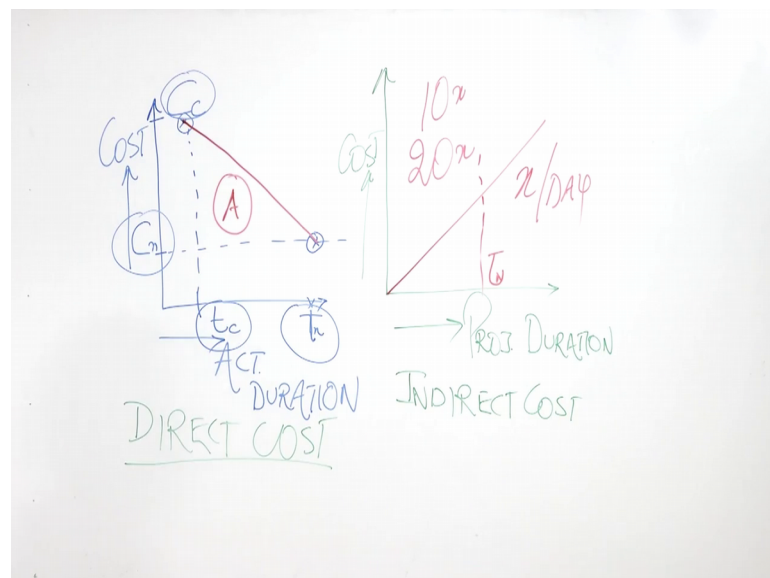 Cc
COST
A
Cn
tc
Tn
ACT.
DURATION
DIRECT COST
10x
20x
COST
x/DAY
TN
PROJ. DURATION
INDIRECT COST